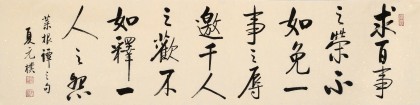 求百事
之荣不
如免一
事之辱
邀千人
之歡不
如釋一
人之怨
菜根譚之句
夏元模